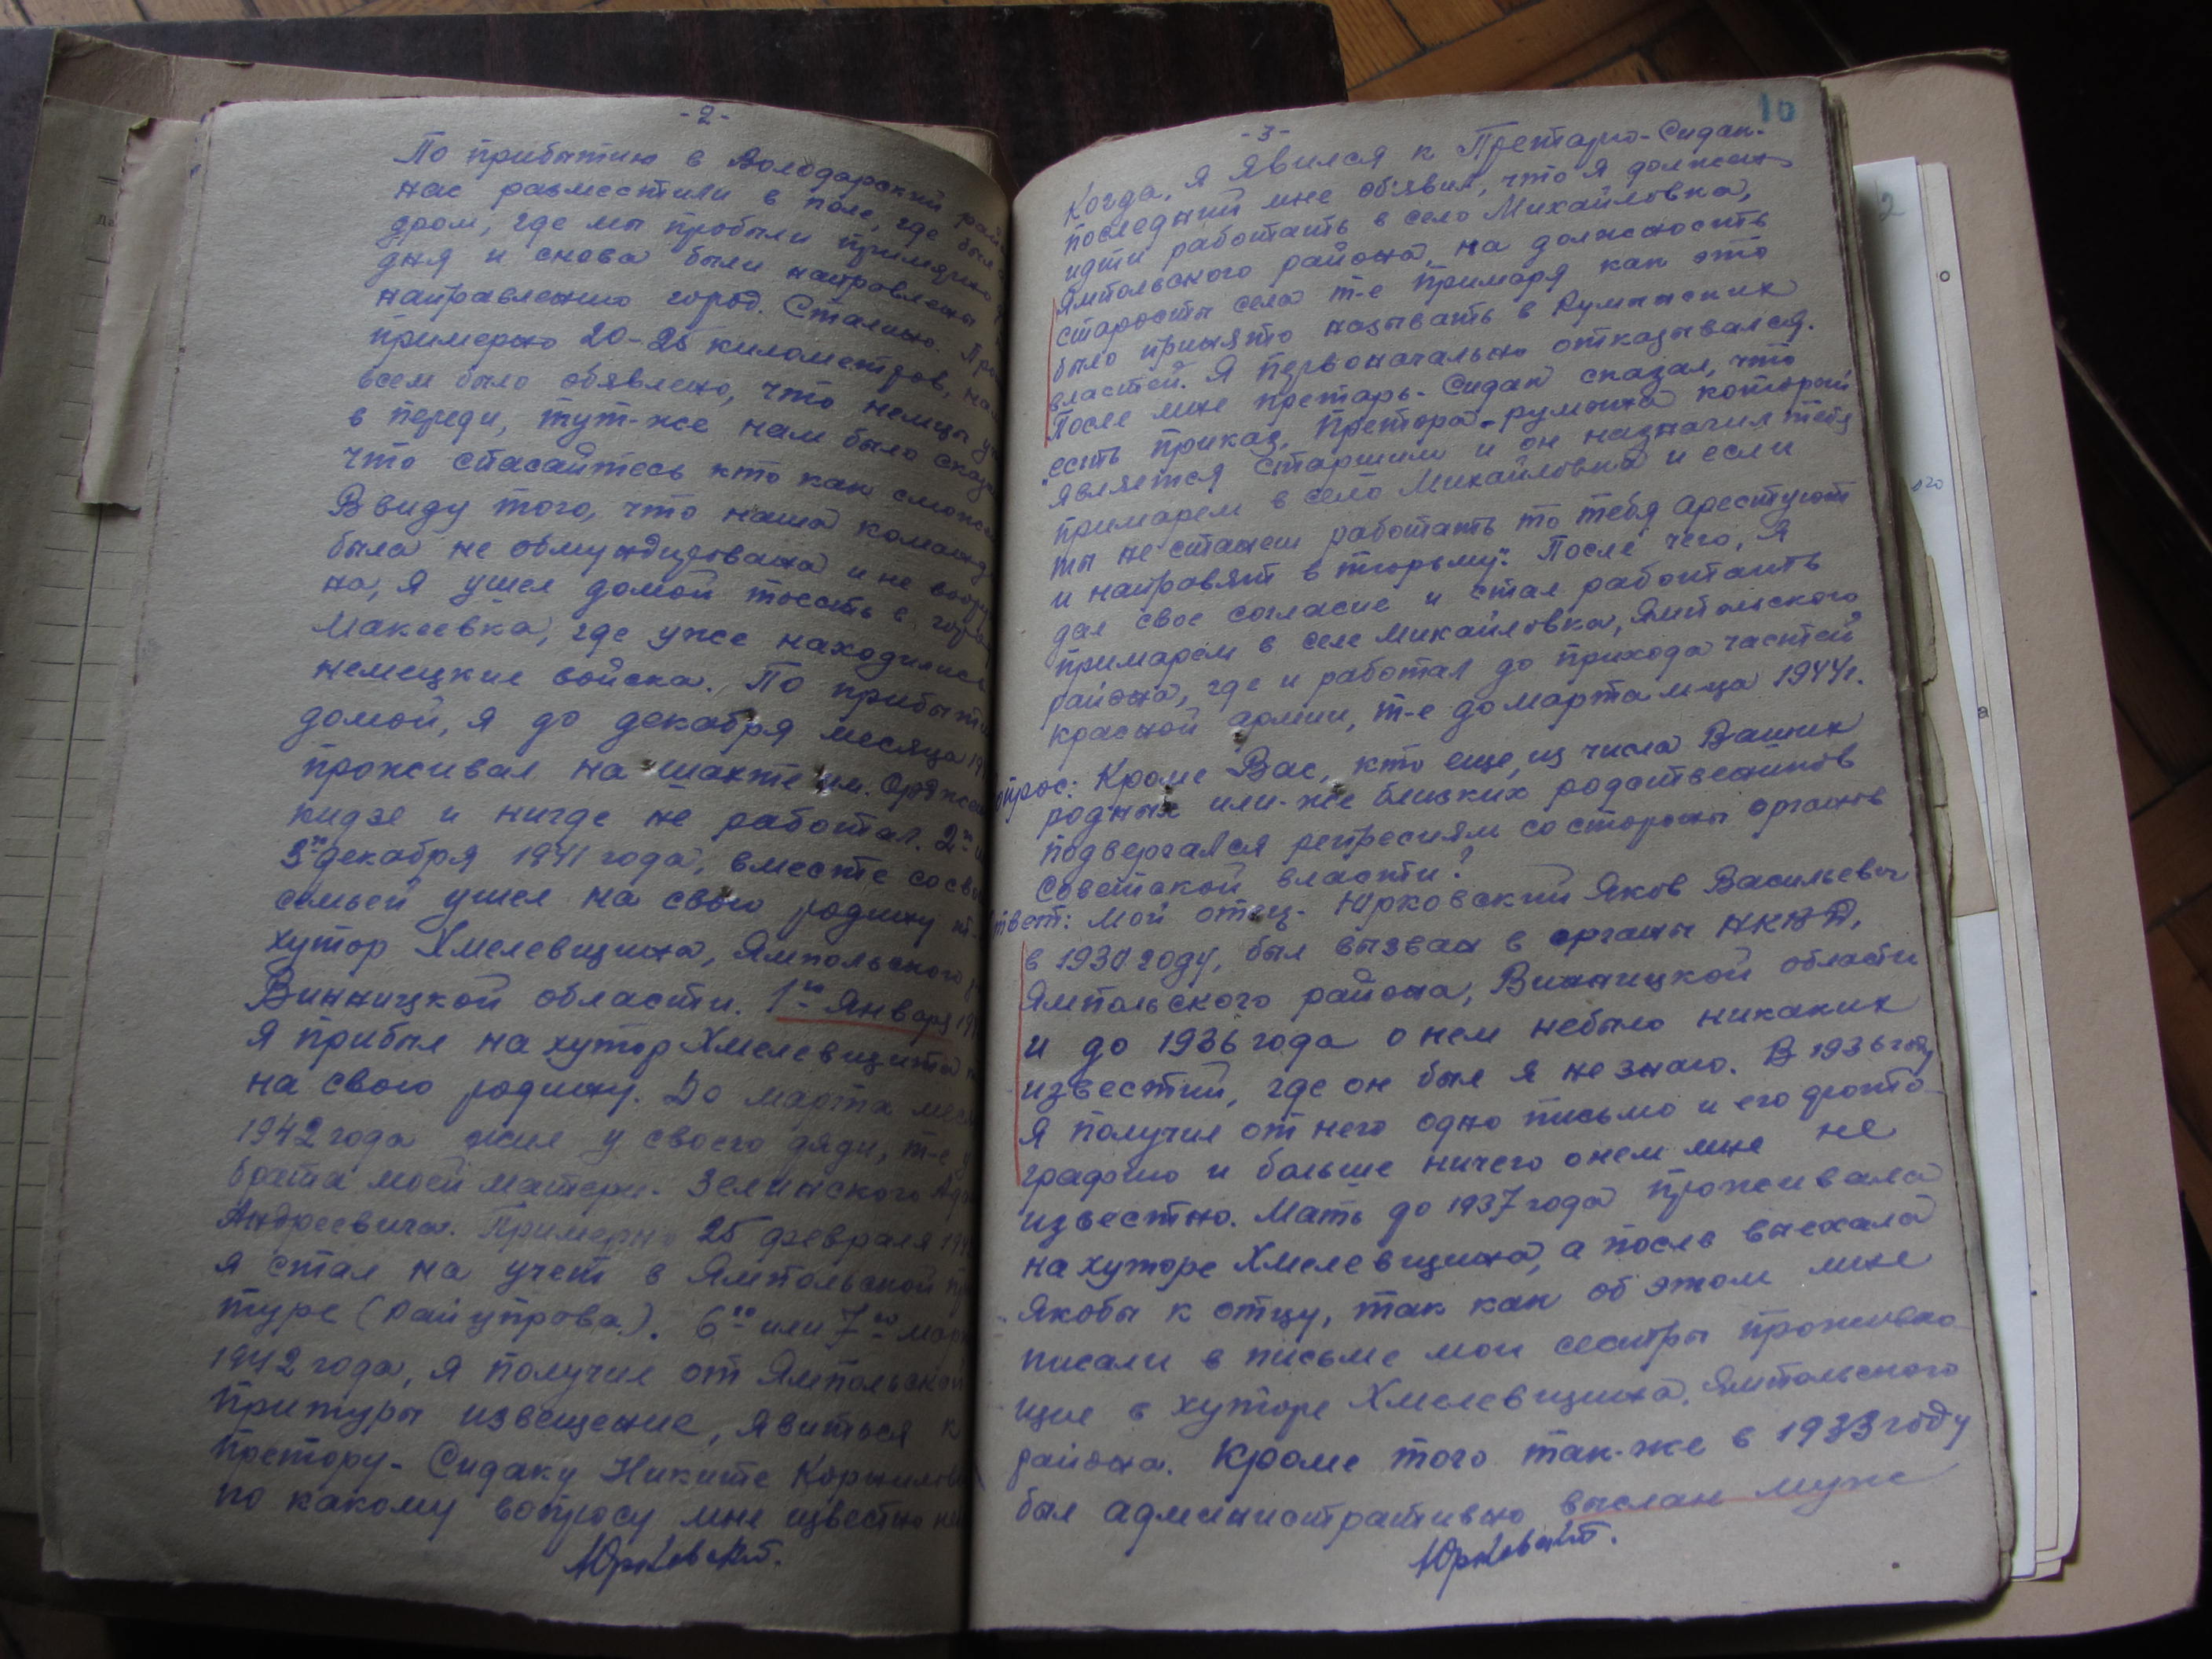 -2-
По прибытию в Володарский рай
нас разместили в поле, где был а
дром, где мы пробыли примерно
дня и снова были направлены
направлению город. Сталино. Про
примерно 20-25 километров, на
всем было обявлено, что немцы у
в переди, тут-же нам было сказа
что спасайтесь кто как сможе
Ввиду того, что наша команд
была не обмундирована и не воору
на, я ушел домой тоесть в гор
Макеевка, где уже находились
немецкие войска. По прибыти
домой, я до декабря месяца 19
проживал на шахте им. Орджон
кидзе и нигде не работал. 2го и
3го декабря 1941 года, вместе со сво
семьей ушел на свою родину
хутор Хмелевщина, Ямпольского р
Винницкой области. 1го Января 19
Я прибыл на хутор Хмелевщина
на свою родину. До марта мес
1942 года жил у своего дяди, т-е
брата моей матери- Зелинского Ада
Андреевича. Примерно 25 февраля 194
я стал на учет в Ямпольской пр
туре (Райуправа). 6го или 7го мар
1942 года, я получил от Ямпольской
притуры извещение, явиться к
претору- Сидаку Никите Корнилов
по какому вопросу мне известно не
Юрковский.
10
-3-
Когда, я явился к Претарю-Сидак-
последний мне об'явил, что я должен
идти работать в село Михайловка,
Ямпольского района, на должность
старосты села т-е примаря как это
было принято называть в Румынских
властей. Я первоначально отказывался.
После мне претарь-Сидак сказал, что
"есть приказ, Претора-румына который
является старшим и он назначил тебя
примарем в село Михайловка и если
ты не станеш работать то тебя арестуют
и направят в тюрьму". После чего, я
дал свое согласие и стал работать
примарем в селе Михайловка, Ямпольского
района, где и работал до прихода частей
красной армии, т-е до марта м-ца 1944г.
опрос: Кроме Вас, кто еще, из числа Ваших
родных или-же близких родственников
подвергался репресиям со стороны органов
Советской власти?
твет: Мой отец- Юрковский Яков Васильевич
в 1930 году, был вызван в органы НКВД,
Ямпольского района, Винницкой области
и до 1936 года о нем небыло никаких
известий, где он был я не знаю. В 1936 году
Я получил от него одно письмо и его фото-
графию и больше ничего о нем мне не
известно. Мать до 1937 года проживала
на хуторе Хмелевщина, а после выехала
якобы к отцу, так как об этом мне
писали в письме мои сестры проживаю-
щие в хуторе Хмелевщина, Ямпольского
района. Кроме того так-же в 1933 году
был административно выслан муж
Юрковский.
2